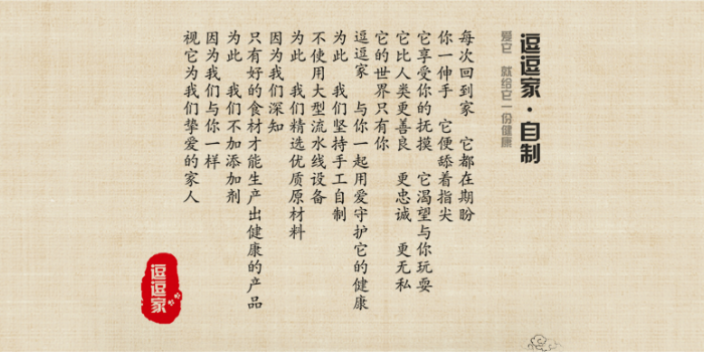 逗逗家·自制
爱它 就给它一份健康
每次回到家 它都在期盼
你一伸手 它便舔着指尖
它享受你的抚摸 它渴望与你玩耍
它比人类更善良 更忠诚 更无私
它的世界只有你
逗逗家 与你一起用爱守护它的健康
为此 我们坚持手工自制
不使用大型流水线设备
为此 我们精选优质原材料
因为我们深知
只有好的食材才能生产出健康的产品
为此 我们不加添加剂
因为我们与你一样
视它为我们挚爱的家人
逗逗家